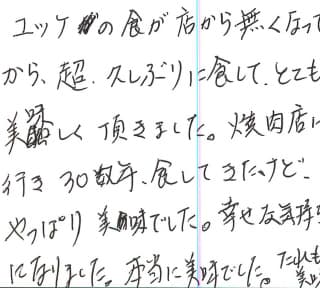 ユッケの食が店から無くなって
から、超、久しぶりに食して、とても
美しく頂きました。焼肉店に
行き30数年、食してきたけど、
やっぱり美味でした。幸せな気持
になりました。本当に美味でした。たれも
美味